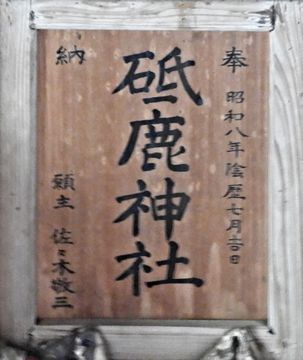 奉 昭和八年陰歴七月吉日
砥鹿神社
納 願主 佐々木敬三